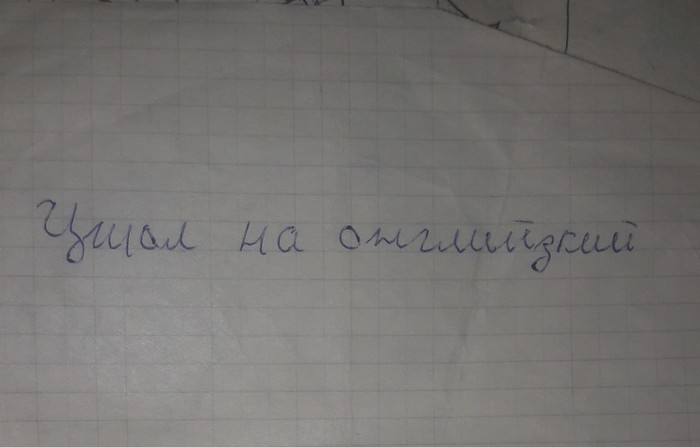 Ушол на онглийзкий